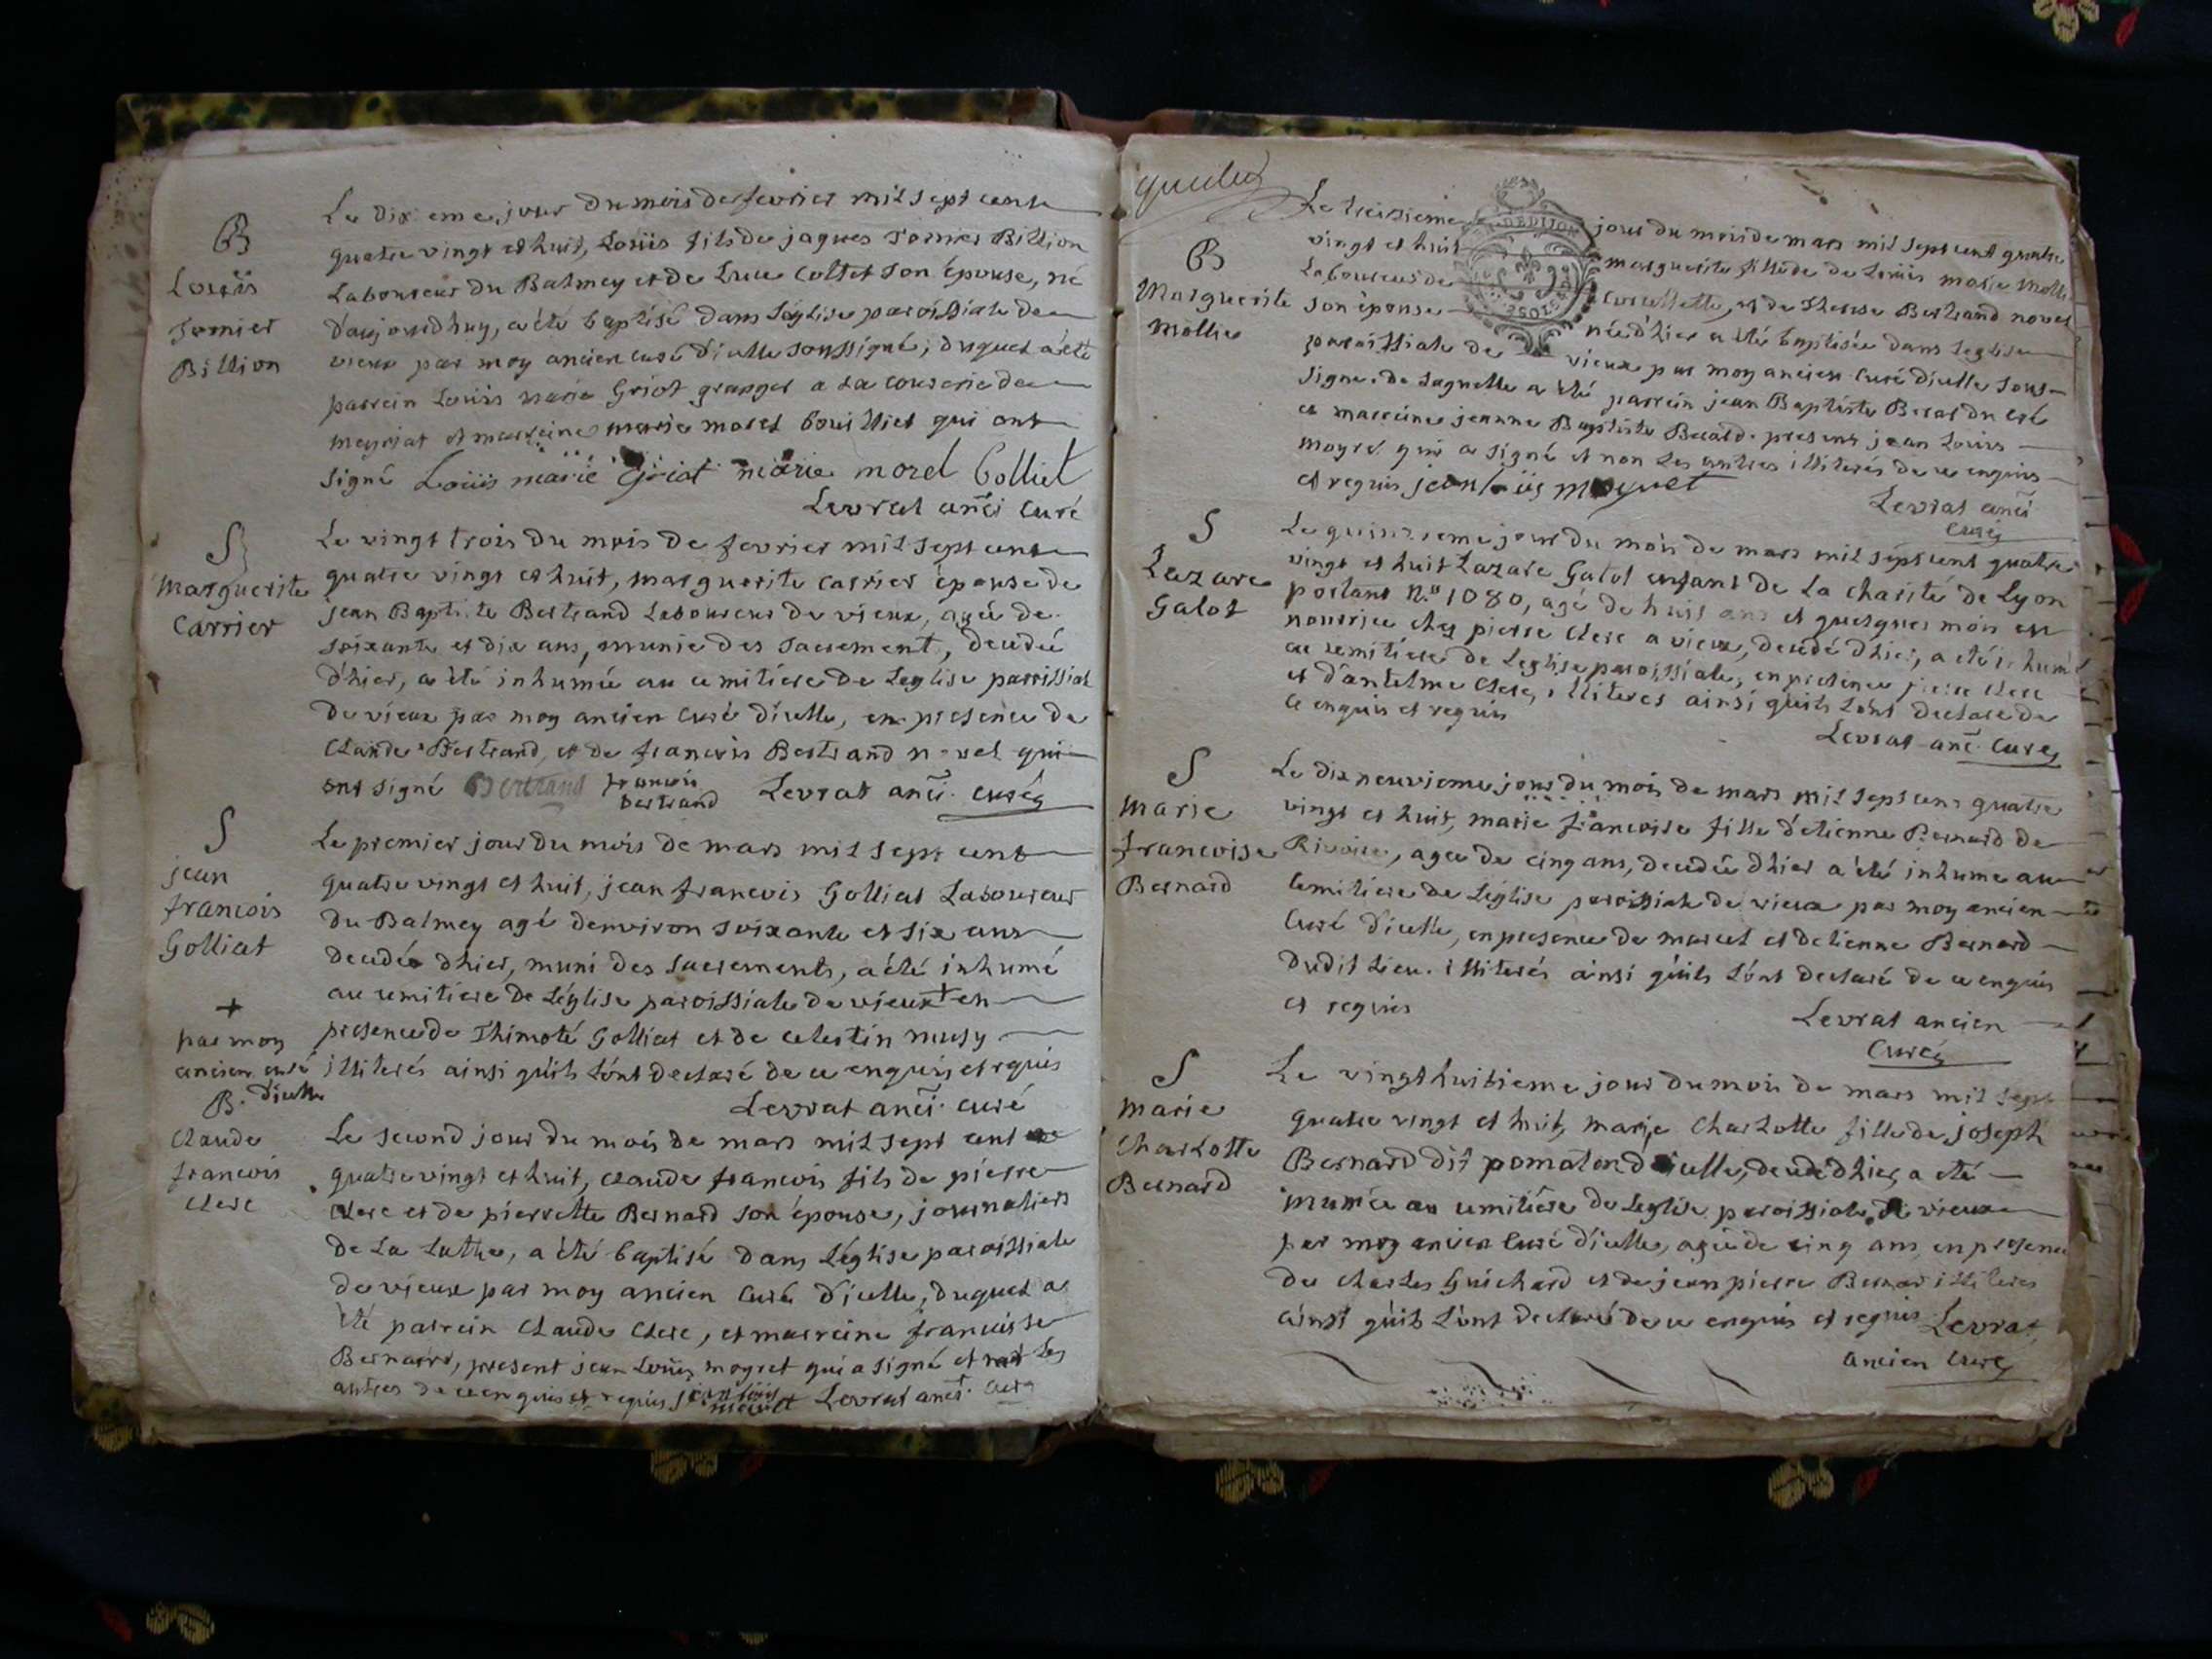 B
Louis
Tornier
Billion
Le dixieme jour du mois de fevrier mil sept cent
quatre vingt et huit, Louis fils de jaques Tornier Billion
Laboureur du Balmey et de Luce Collet son épouse, né
d'aujourdhuy, a été baptisé dans L'église paroissiale de
vieux par moy ancien curé d'icelle soussigné; duquel a été
parrein Louis marie Griot granger a La couserie de
meyriat et marreine marie morel bouilliet qui ont
signé Louis marie Griot marie morel bolliet
Levrat anc. curé
S
Marguerite
Carrier
Le vingt trois du mois de fevrier mil sept cent
quatre vingt et huit, marguerite carrier épouse de
jean Baptiste Bertrand Laboureur de vieux, agée de
soixante et dix ans, munie des sacrement, decedée
d'hier, a été inhumée au cemitiere de Leglise parroissial
de vieux par moy ancien curé d'icelle, en presence de
Claude Bertrand, et de francois Bertrand n vel qui
ont signé Bertrand francois Bertrand Levrat anc. curé
S
jean
francois
Golliat
Le premier jour du mois de mars mil sept cent
quatre vingt et huit, jean francois Golliat Laboureur
du Balmey agé denviron soixante et six ans
decedé dhier, muni des sacrements, a été inhumé
au cemitiere de Léglise paroissiale de vieux + en
presence de Thimoté Golliat et de celestin musy
illiterés ainsi quils L'ont declaré de ce enquis et requis
Levrat anc. curé
+
par moy
ancien curé
d'icelle
B.
Claude
francois
Clerc
Le second jour du mois de mars mil sept cent
quatre vingt et huit, claude francois fils de pierre
Clerc et de pierrette Bernard son épouse, journaliers
de La Luthe, a été baptisé dans L'église paroissiale
de vieux par moy ancien curé d'icelle, duquel a
été parrein Claude Clerc, et marreine francoise
Bernard, present jean Louis moyret qui a signé et non les
autres de ce enquis et requis jean Louis Levrat anc. curé
B
Marguerite
Mollie
Le treisieme jour du mois de mars mil sept cent quatre
vingt et huit marguerite fille de de Louis marie Molli
Laboureur de et de Therese Bertrand
son épouse née d'hier a été baptisée dans Leglise
paroissiale de vieux par moy ancien curé d'icelle sous-
signe. de Laquelle a été parrein jean Baptiste
et marreine jeanne Baptiste present jean Louis
moyret qui a signé et non Les autres illiterés de ce enquis
et requis jean Louis moyret
Levrat anc.
curé
S
Lazare
Galot
Le quinzieme jour du mois de mars mil sept cent quatre
vingt et huit Lazare Galot enfant de La charité de Lyon
portant N.° 1080, agé de huit ans et quelques mois en
nourrice chez pierre Clerc a vieux, decedé dhier, a été inhumé
au cemitiere de Leglise paroissiale, en presence pierre Clerc
et d'antelme Clerc, illiteres ainsi quils L'ont declare de
ce enquis et requis
Levrat anc. curé
S
Marie
francoise
Bernard
Le dix neuvieme jour du mois de mars mil sept cent quatre
vingt et huit, marie francoise fille d'etienne Bernard de
agée de cinq ans, decedée dhier a été inhume au
Cemitiere de Léglise paroissiale de vieux par moy ancien
Curé d'icelle, en presence de marcel et detienne Bernard
dudit Lieu. illiterés ainsi quils L'ont declaré de ce enquis
et requis
Levrat ancien
Curé
S
Marie
Charlotte
Bernard
Le vingt huitieme jour du mois de mars mil sept
quatre vingt et huit, marie Charlotte fille de joseph
Bernard dit decedé dhier, a eté
inumée au cemitière de Leglise paroissiale de vieux
par moy ancien curé d'icelle, agée de cinq ans, en presence
de charles Guichard et de jean pierre Bernar illiteres
ainsi quils L'ont declaré de ce enquis et requis Levrat
ancien curé